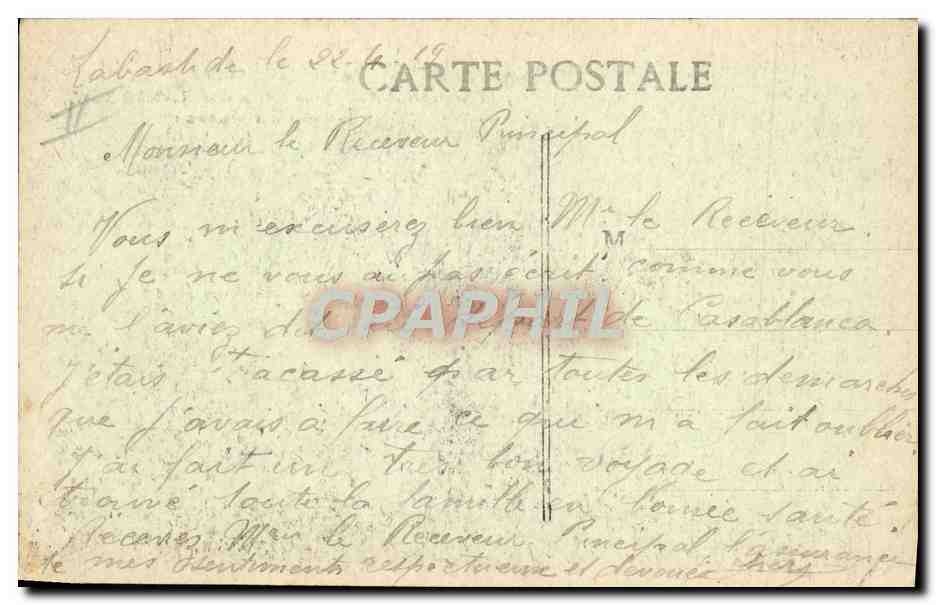 Labastide le 22.4.19
CARTE POSTALE
V
Monsieur le Receveur Principal
Vous m'excuserez bien Mr le Receveur.
M
si je ne vous ai pas écrit comme vous
CPAPHIL
me l'aviez dit de Casablanca.
J'étais tracassé par toutes les demarches
que j'avais à faire ce qui m'a fait oublier
J'ai fait un très bon voyage et ai
trouvé toute la famille en bonne santé.
Recevez Mr le Receveur Principal l'assurance
de mes sentiments respectueux et dévoués